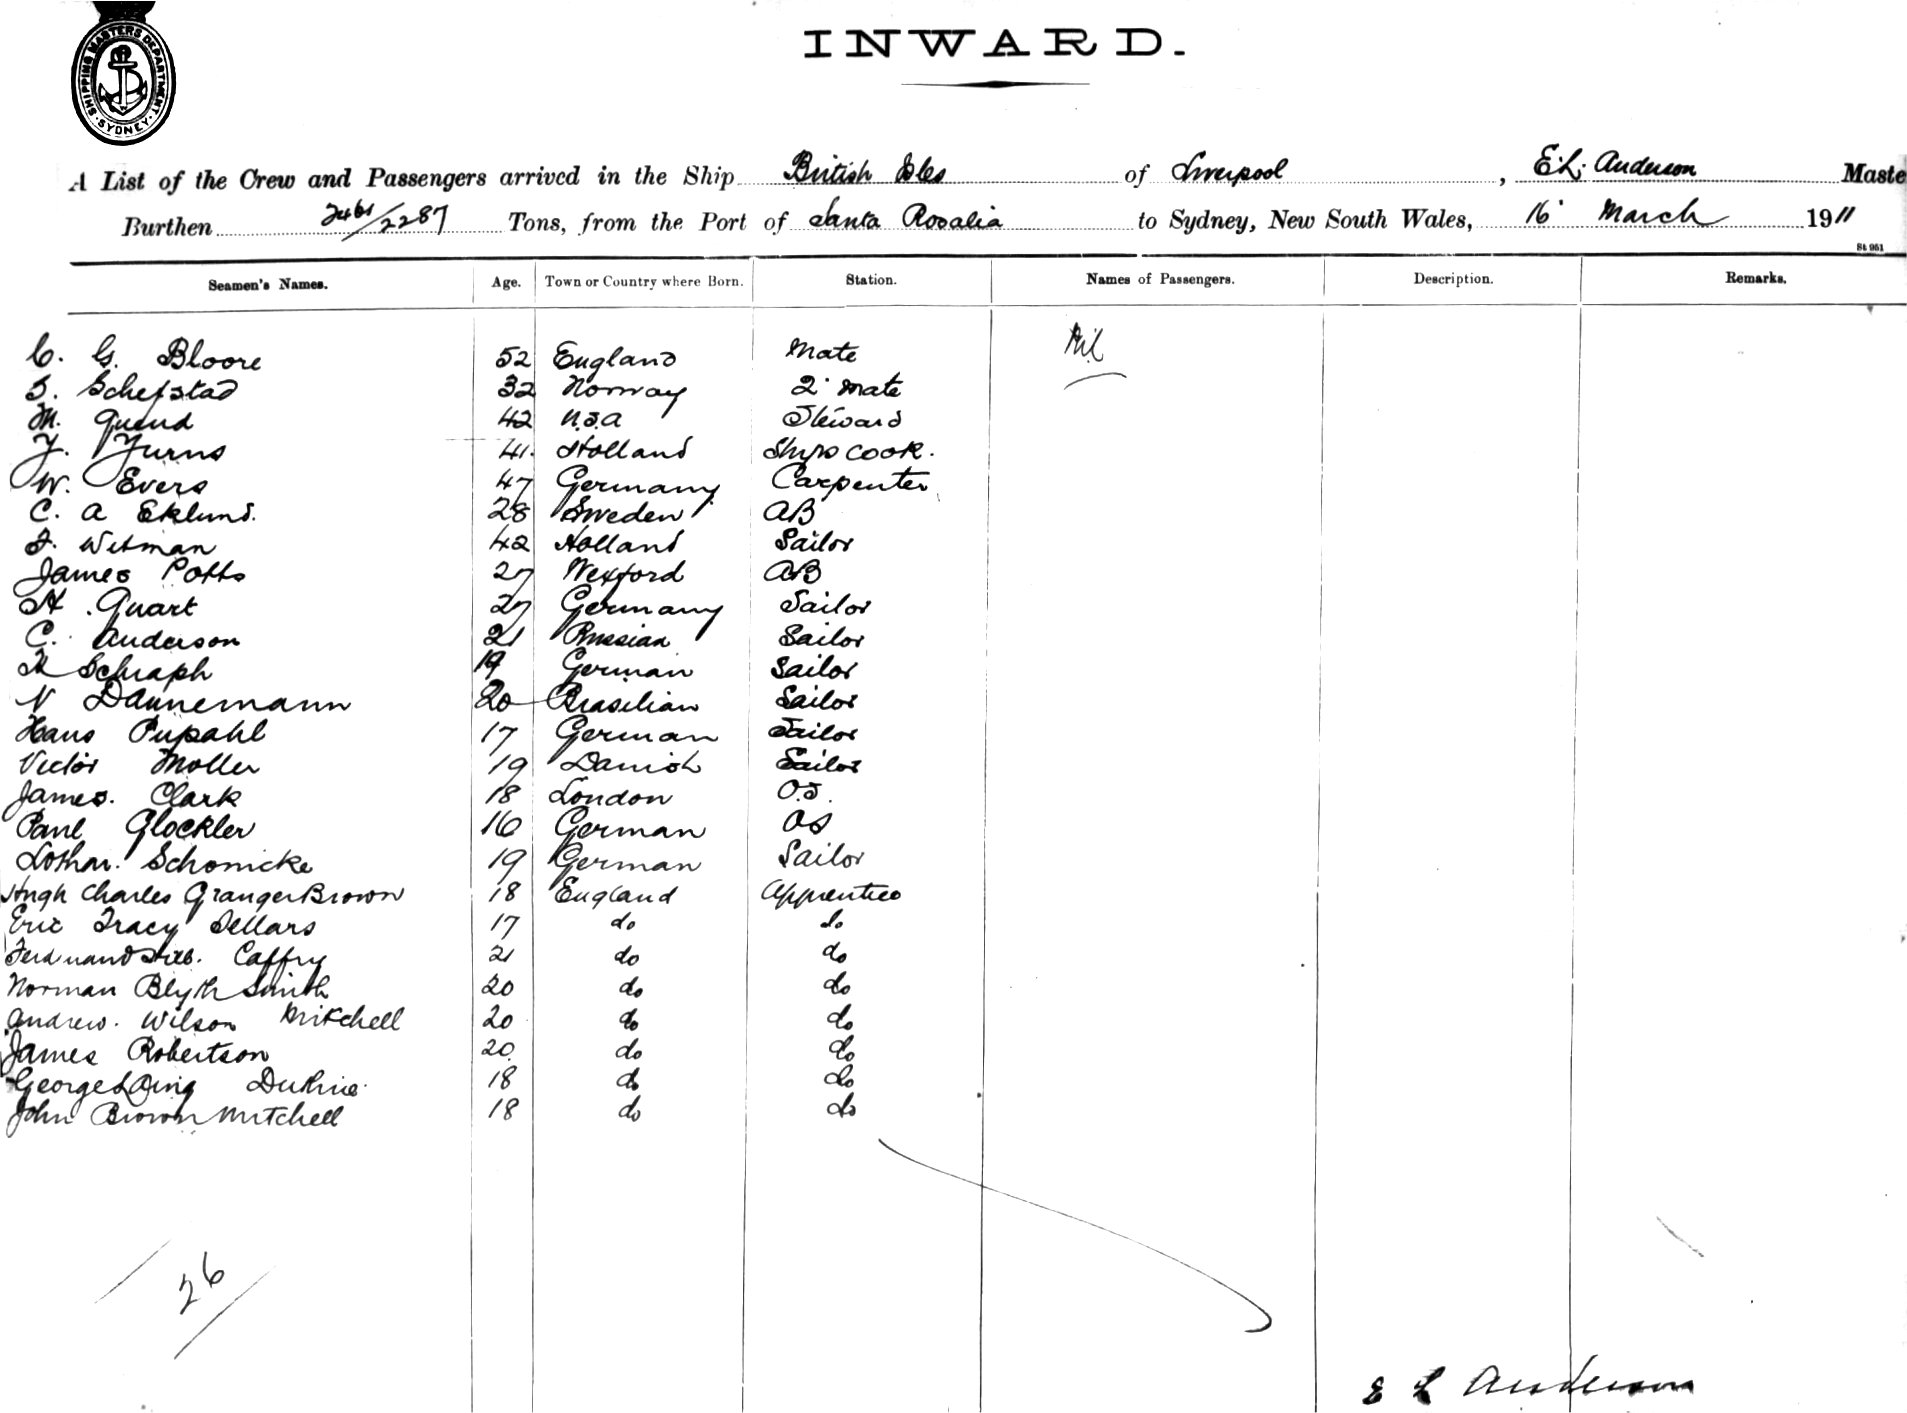 SHIPPING MASTERS DEPARTMENT
SYDNEY
INWARD.
A List of the Crew and Passengers arrived in the Ship British Isles of Liverpool, E. L. Anderson Maste
Burthen 2461/2287 Tons, from the Port of Santa Rosalia to Sydney, New South Wales, 16 March 1911
St 951
Seamen's Names. Age. Town or Country where Born. Station. Names of Passengers. Description. Remarks.
C. G. Bloore 52 England Mate Nil
S. Schefstad 32 Norway 2 Mate
M. 42 U.S.A Steward
Y. Yurns 41 Holland Ships Cook.
W. Evers 47 Germany Carpenter
C. A Eklund. 28 Sweden AB
F. Witman 42 Holland Sailor
James Potts 27 Wexford AB
H. Quart 27 Germany Sailor
C. Anderson 21 Russian Sailor
Schraph 19 German Sailor
N Dannemann 20 Brasilian Sailor
Hans Pupahl 17 German Sailor
Victor Moller 19 Danish Sailor
James. Clark 18 London O.S.
Paul Glockler 16 German OS
Lothar. Schonicke 19 German Sailor
Hugh Charles Granger Brown 18 England Apprentice
Eric Tracy Sellars 17 do do
Ferdinand Caffry 21 do do
Norman Blyth Smith 20 do do
Andrew. Wilson Mitchell 20 do do
James Robertson 20 do do
George Duthie 18 do do
John Brown Mitchell 18 do do
26
E L Anderson